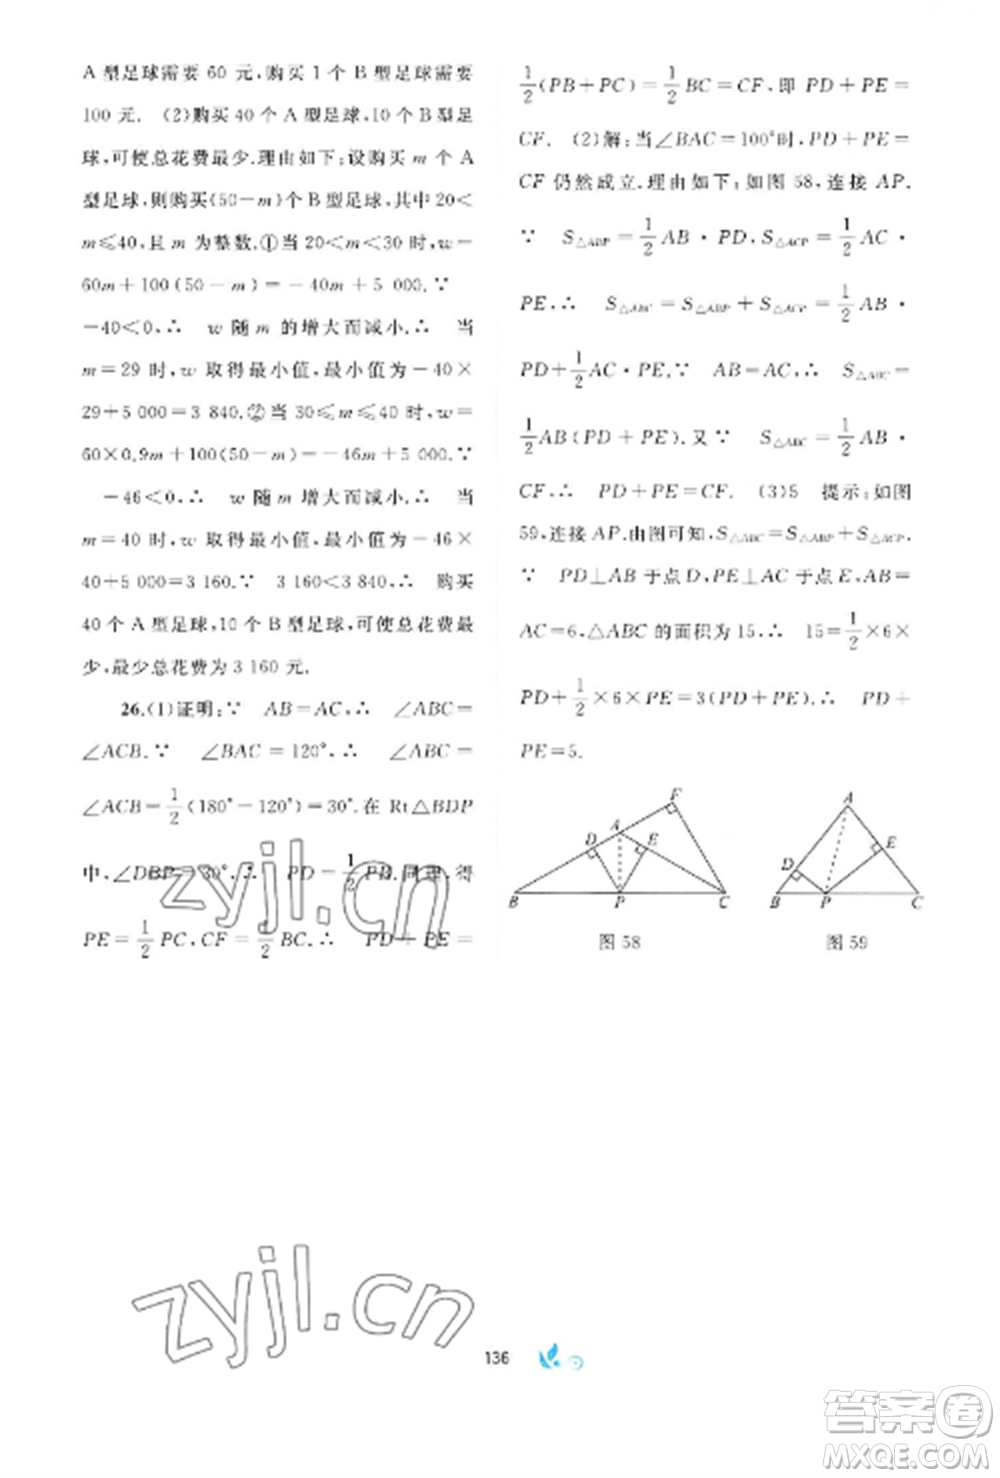 A 型足球需要 60 元,购买 1 个 B 型足球需要
100 元. (2)购买 40 个 A 型足球,10 个 B 型足
球,可使总花费最少.理由如下:设购买 m 个 A
型足球,则购买(50-m)个 B 型足球,其中 20<
m≤40,且 m 为整数.①当 20<m<30 时,w=
60m+100(50-m)=-40m+5 000.∵
-40<0,∴ w 随 m 的增大而减小.∴ 当
m=29 时,w 取得最小值,最小值为-40×
29+5 000=3 840.②当 30≤m≤40 时,w=
60×0.9m+100(50-m)=-46m+5 000.∵
-46<0,∴ w 随 m 增大而减小.∴ 当
m=40 时,w 取得最小值,最小值为-46×
40+5 000=3 160.∵ 3 160<3 840,∴ 购买
40 个 A 型足球,10 个 B 型足球,可使总花费最
少,最少总花费为 3 160 元.
26.(1)证明:∵ AB=AC,∴ ∠ABC=
∠ACB.∵ ∠BAC=120°,∴ ∠ABC=
∠ACB=1/2(180°-120°)=30°.在 Rt△BDP
中,∠DBP=30°,∴ PD=1/2PB.同理,得
PE=1/2PC,CF=1/2BC.∴ PD+PE=
1/2(PB+PC)=1/2BC=CF,即 PD+PE=
CF. (2)解:当∠BAC=100°时,PD+PE=
CF 仍然成立.理由如下:如图 58,连接 AP.
∵ S△ABP=1/2AB·PD,S△ACP=1/2AC·
PE,∴ S△ABC=S△ABP+S△ACP=1/2AB·
PD+1/2AC·PE.∵ AB=AC,∴ S△ABC=
1/2AB(PD+PE).又∵ S△ABC=1/2AB·
CF,∴ PD+PE=CF. (3)5 提示:如图
59,连接 AP.由图可知,S△ABC=S△ABP+S△ACP.
∵ PD⊥AB 于点 D,PE⊥AC 于点 E,AB=
AC=6,△ABC 的面积为 15,∴ 15=1/2×6×
PD+1/2×6×PE=3(PD+PE).∴ PD+
PE=5.
F
A
D
E
B
P
C
图 58
A
D
E
B
P
C
图 59
zyjl.cn
zyjl.cn
136
答案圈
MXQE.COM